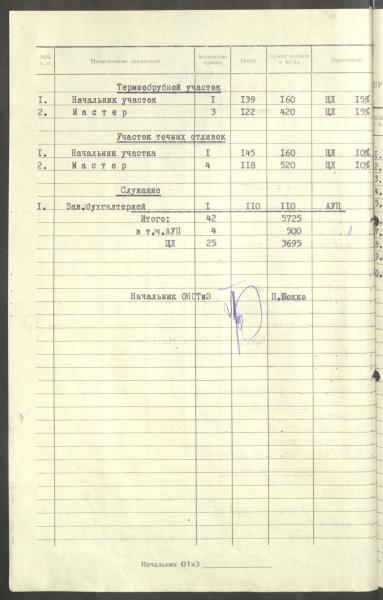 №№ п. п. Наименование должностей Количество единиц Оклад Сумма окладов в месяц Примечание
Термообрубной участок
I. Начальник участок I I39 I60 ЦЛ I5%
2. Мастер 3 I22 420 ЦЛ I5%
Участок точных отливок
I. Начальник участка I I45 I60 ЦЛ I0%
2. Мастер 4 II8 520 ЦЛ I0%
Служащие
I. Зав.бухгалтерией I II0 II0 АУП
Итого: 42 5725
в т.ч.АУП 4 500
ЦЛ 25 3695
Начальник ОНОТиЗ П.Бокко
Начальник ОТиЗ